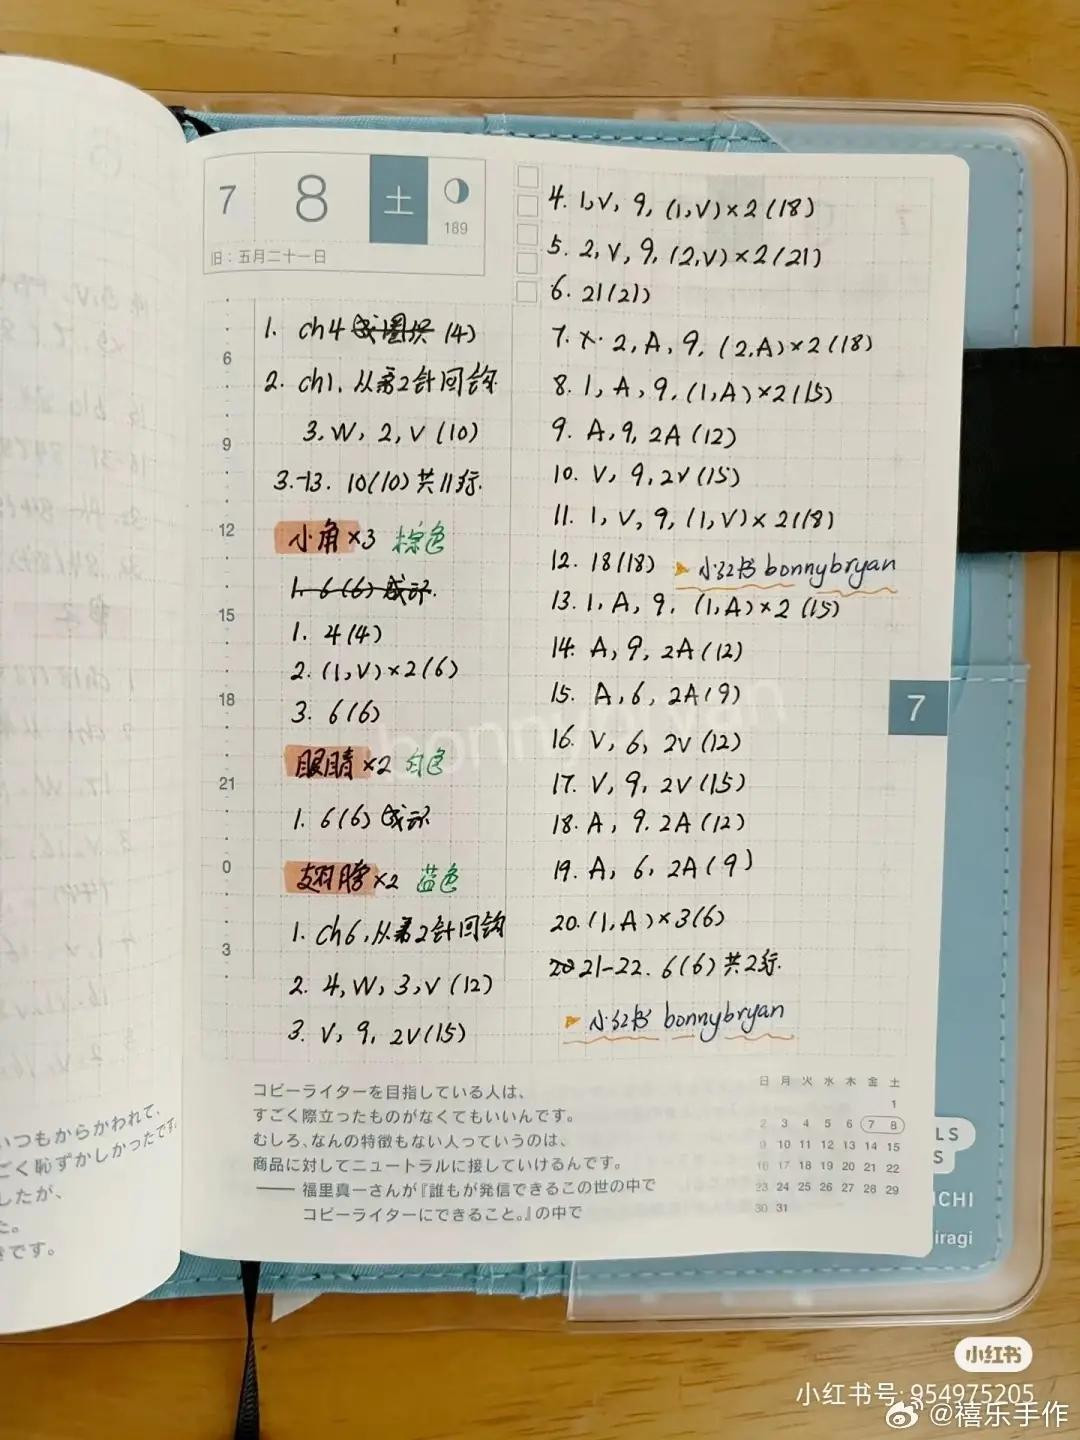 7 8 土
189
旧：五月二十一日
1. ch4 成圈织 (4)
2. ch1, 从第2针回钩
3, W, 2, V (10)
3.-13. 10(10) 共11行.
小角 ×3 棕色
1. 6(6) 成环.
1. 4(4)
2. (1,V)×2(6)
3. 6(6)
眼睛 ×2 白色
1. 6(6) 成环
翅膀 ×2 蓝色
1. ch6, 从第2针回钩
2. 4, W, 3, V (12)
3. V, 9, 2V(15)
6
9
12
15
18
21
0
3
4. 1,V, 9, (1,V)×2(18)
5. 2,V, 9, (2,V)×2(21)
6. 21(21)
7. X. 2, A, 9, (2,A)×2(18)
8. 1, A, 9, (1,A)×2(15)
9. A, 9, 2A (12)
10. V, 9, 2V(15)
11. 1, V, 9, (1,V)×2(18)
12. 18(18) ▶ 小红书 bonnybryan
13. 1, A, 9. (1,A)×2 (15)
14. A, 9, 2A(12)
15. A, 6, 2A(9)
16. V, 6, 2V(12)
17. V, 9, 2V(15)
18. A, 9. 2A(12)
19. A, 6, 2A(9)
20. (1, A)×3(6)
20 21-22. 6(6) 共2行.
▶ 小红书 bonnybryan
bonnybryan
7
コピーライターを目指している人は、
すごく際立ったものがなくてもいいんです。
むしろ、なんの特徴もない人っていうのは、
商品に対してニュートラルに接していけるんです。
―― 福里真一さんが『誰もが発信できるこの世の中で
コピーライターにできること。』の中で
日 月 火 水 木 金 土
1
2 3 4 5 6 7 8
9 10 11 12 13 14 15
16 17 18 19 20 21 22
23 24 25 26 27 28 29
30 31
いつもからかわれて、
ごく恥ずかしかったです。
したが、
た。
きです。
LS
S
ICHI
iragi
小红书
小红书号: 954975205
@禧乐手作